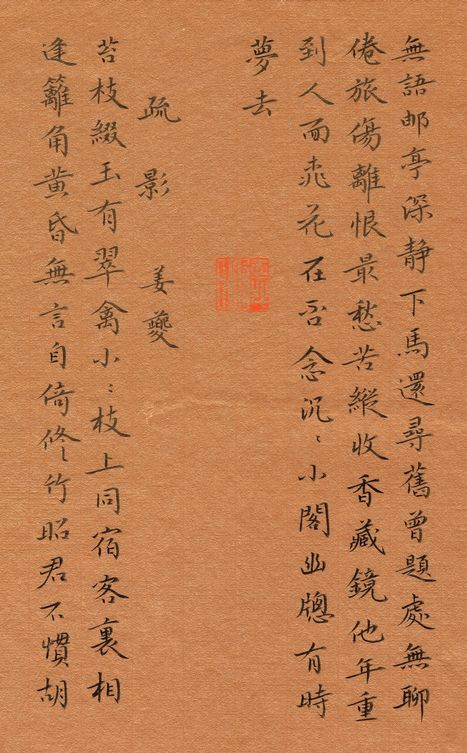 無語郵亭深靜下馬還尋舊曾題處無聊
倦旅傷離恨最愁苦縱收香藏鏡他年重
到人面桃花在否念沉〻小閣幽牕有時
夢去
疏影 姜夔
苔枝綴玉有翠禽小〻枝上同宿客裏相
逢籬角黃昏無言自倚修竹昭君不慣胡